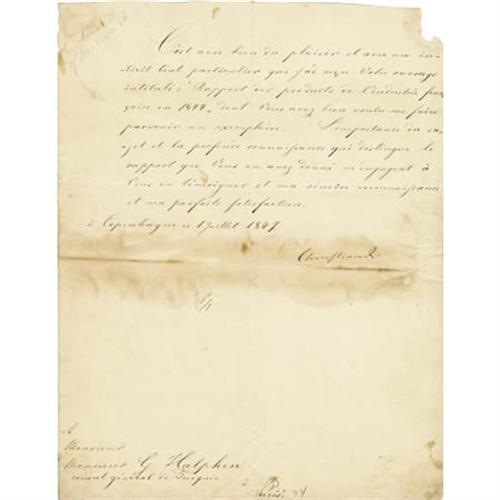 C'est avec bien du plaisir et avec un in-
térêt tout particulier que j'ai reçu Votre ouvrage
intitulé: Rapport des produits de l'industrie fran-
çaise en 1844, dont Vous avez bien voulu me faire
parvenir un exemplaire. L'importance du su-
jet et la profonde connaissance qui distingue le
rapport que Vous en avez donné m'engagent à
Vous en témoigner et ma sincère reconnaissance
et ma parfaite satisfaction.
à Copenhague ce 1 Juillet 1847
Christian R
à
Monsieur
Monsieur G. Halphen
consul général de Turquie
à